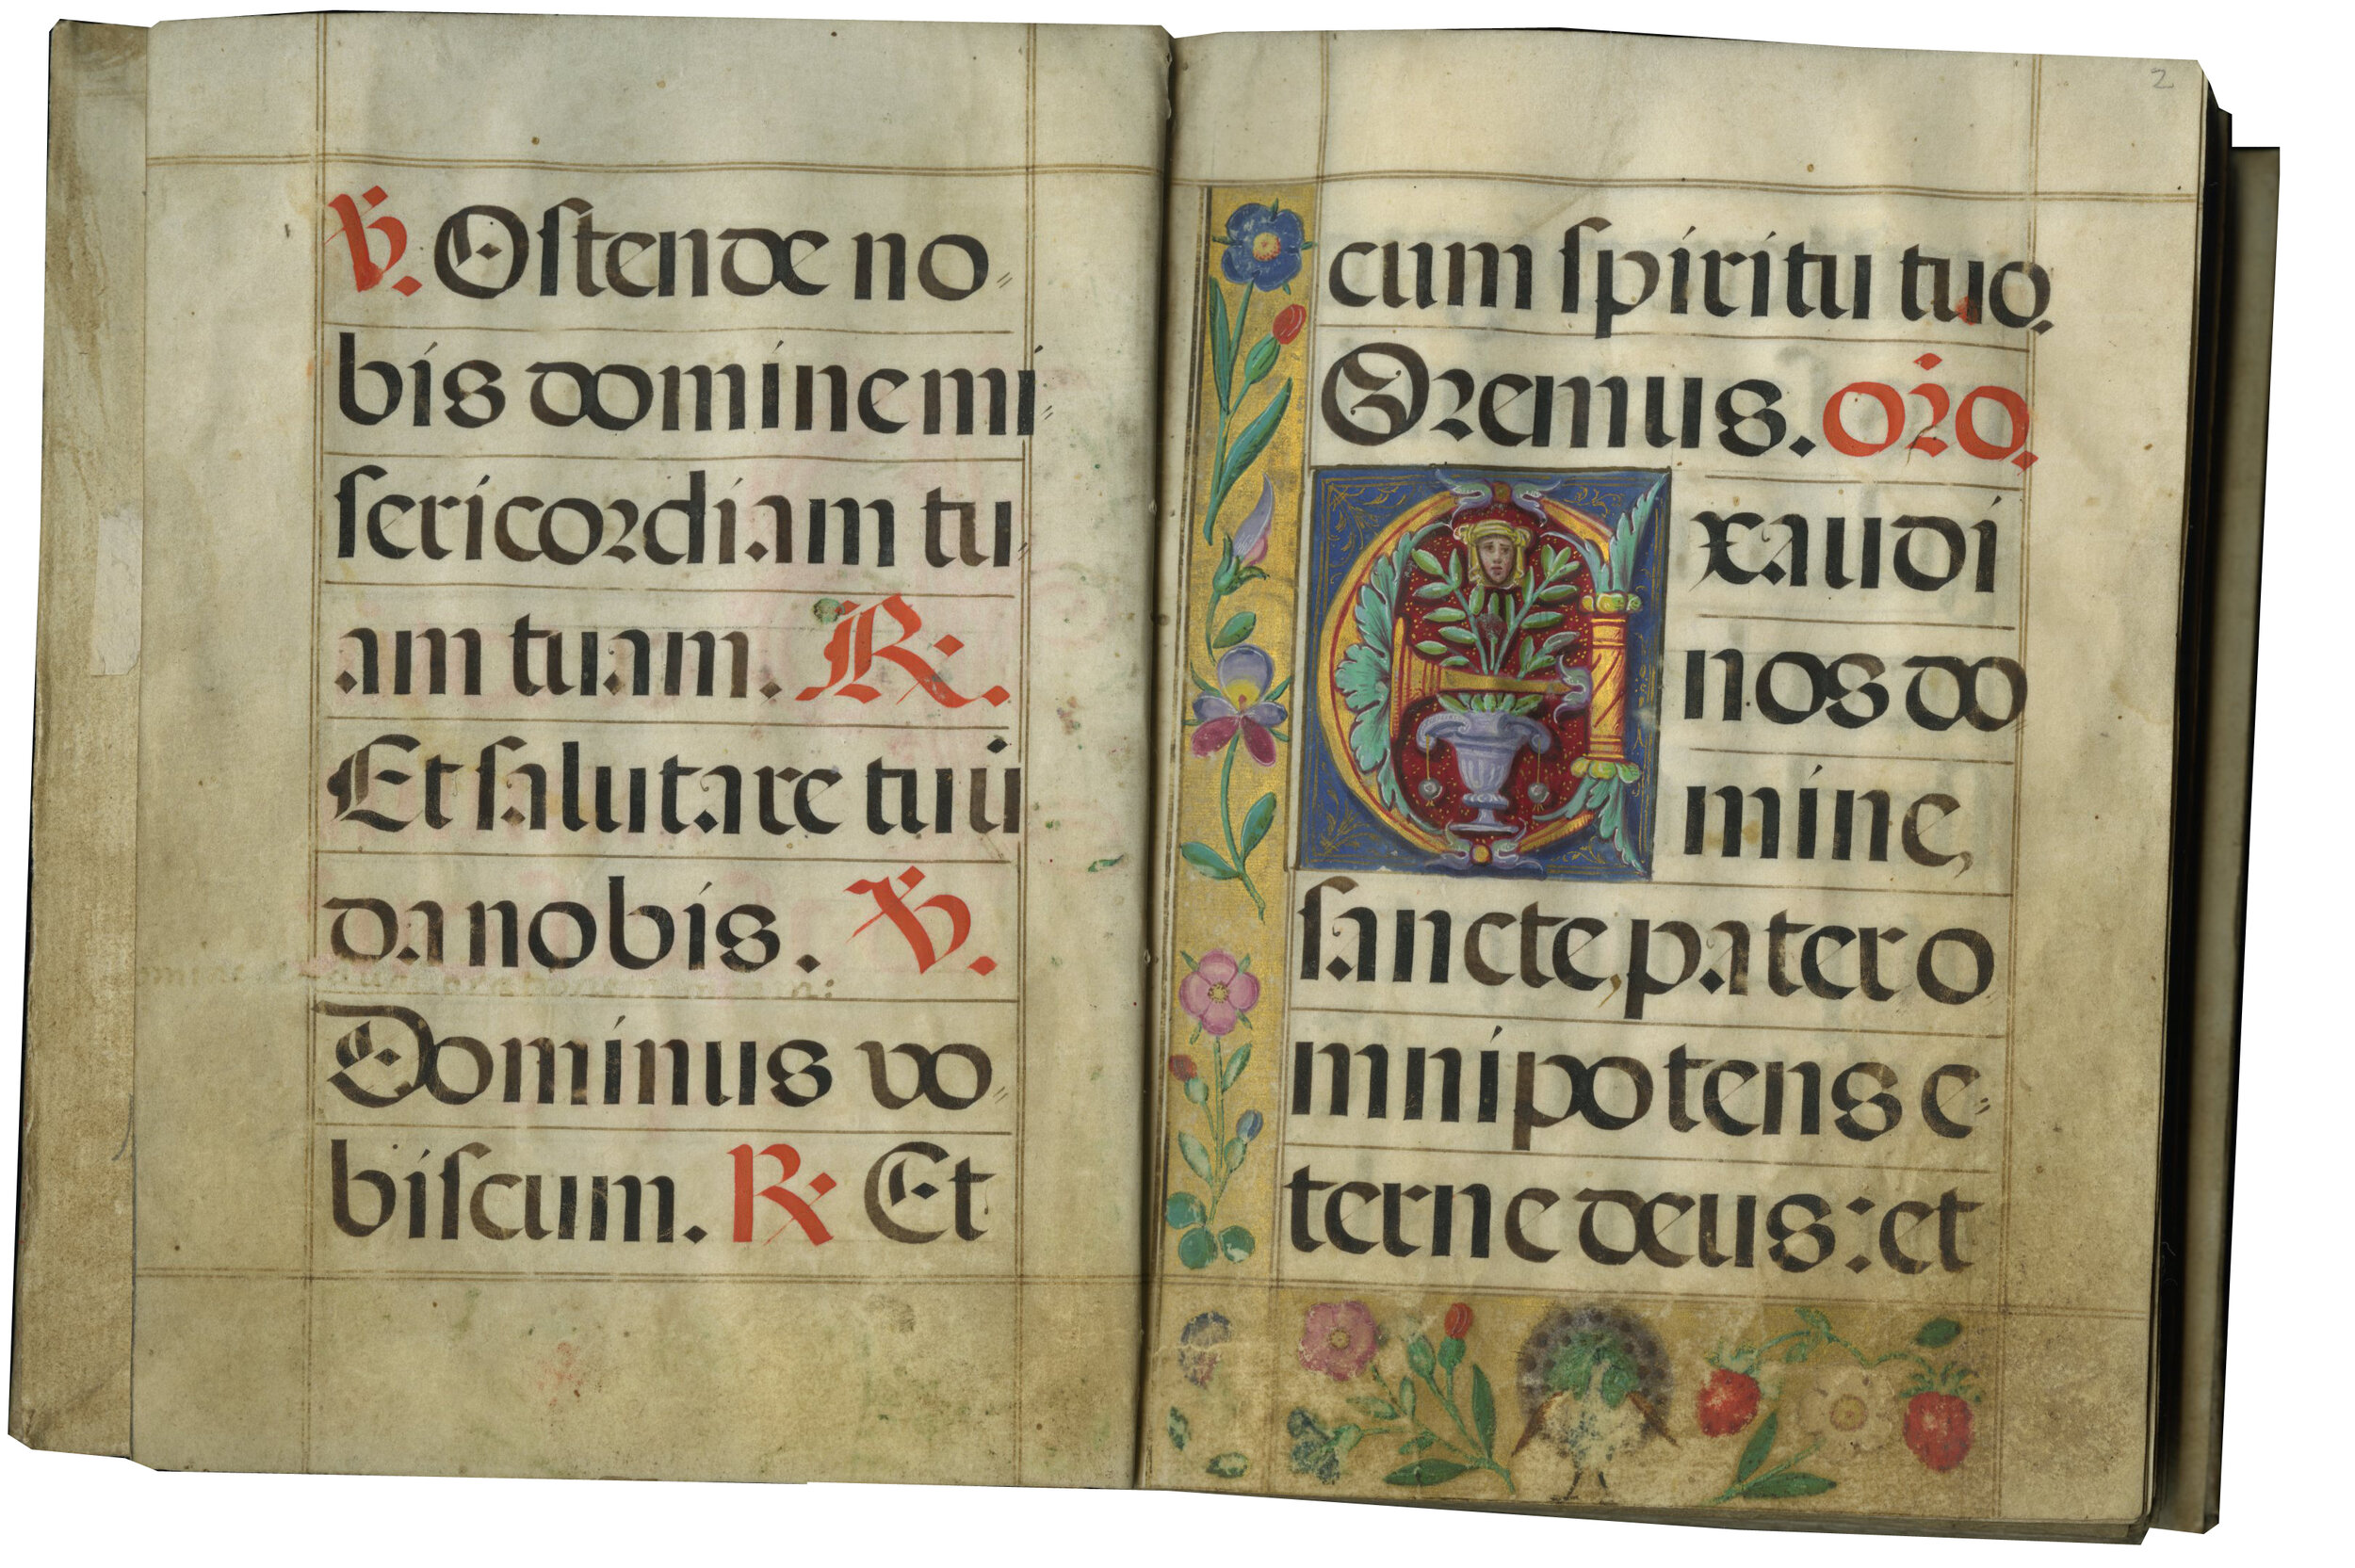 ℣. Ostende no⸗
bis domine mi⸗
sericordiam tu⸗
am tuam. ℟.
Et salutare tuū
da nobis. ℣.
Dominus vo⸗
biscum. ℟ Et
2
cum spiritu tuo.
Oremus. or̄o.
Exaudi
nos do
mine,
sancte, pater o
mnipotens e⸗
terne deus: et